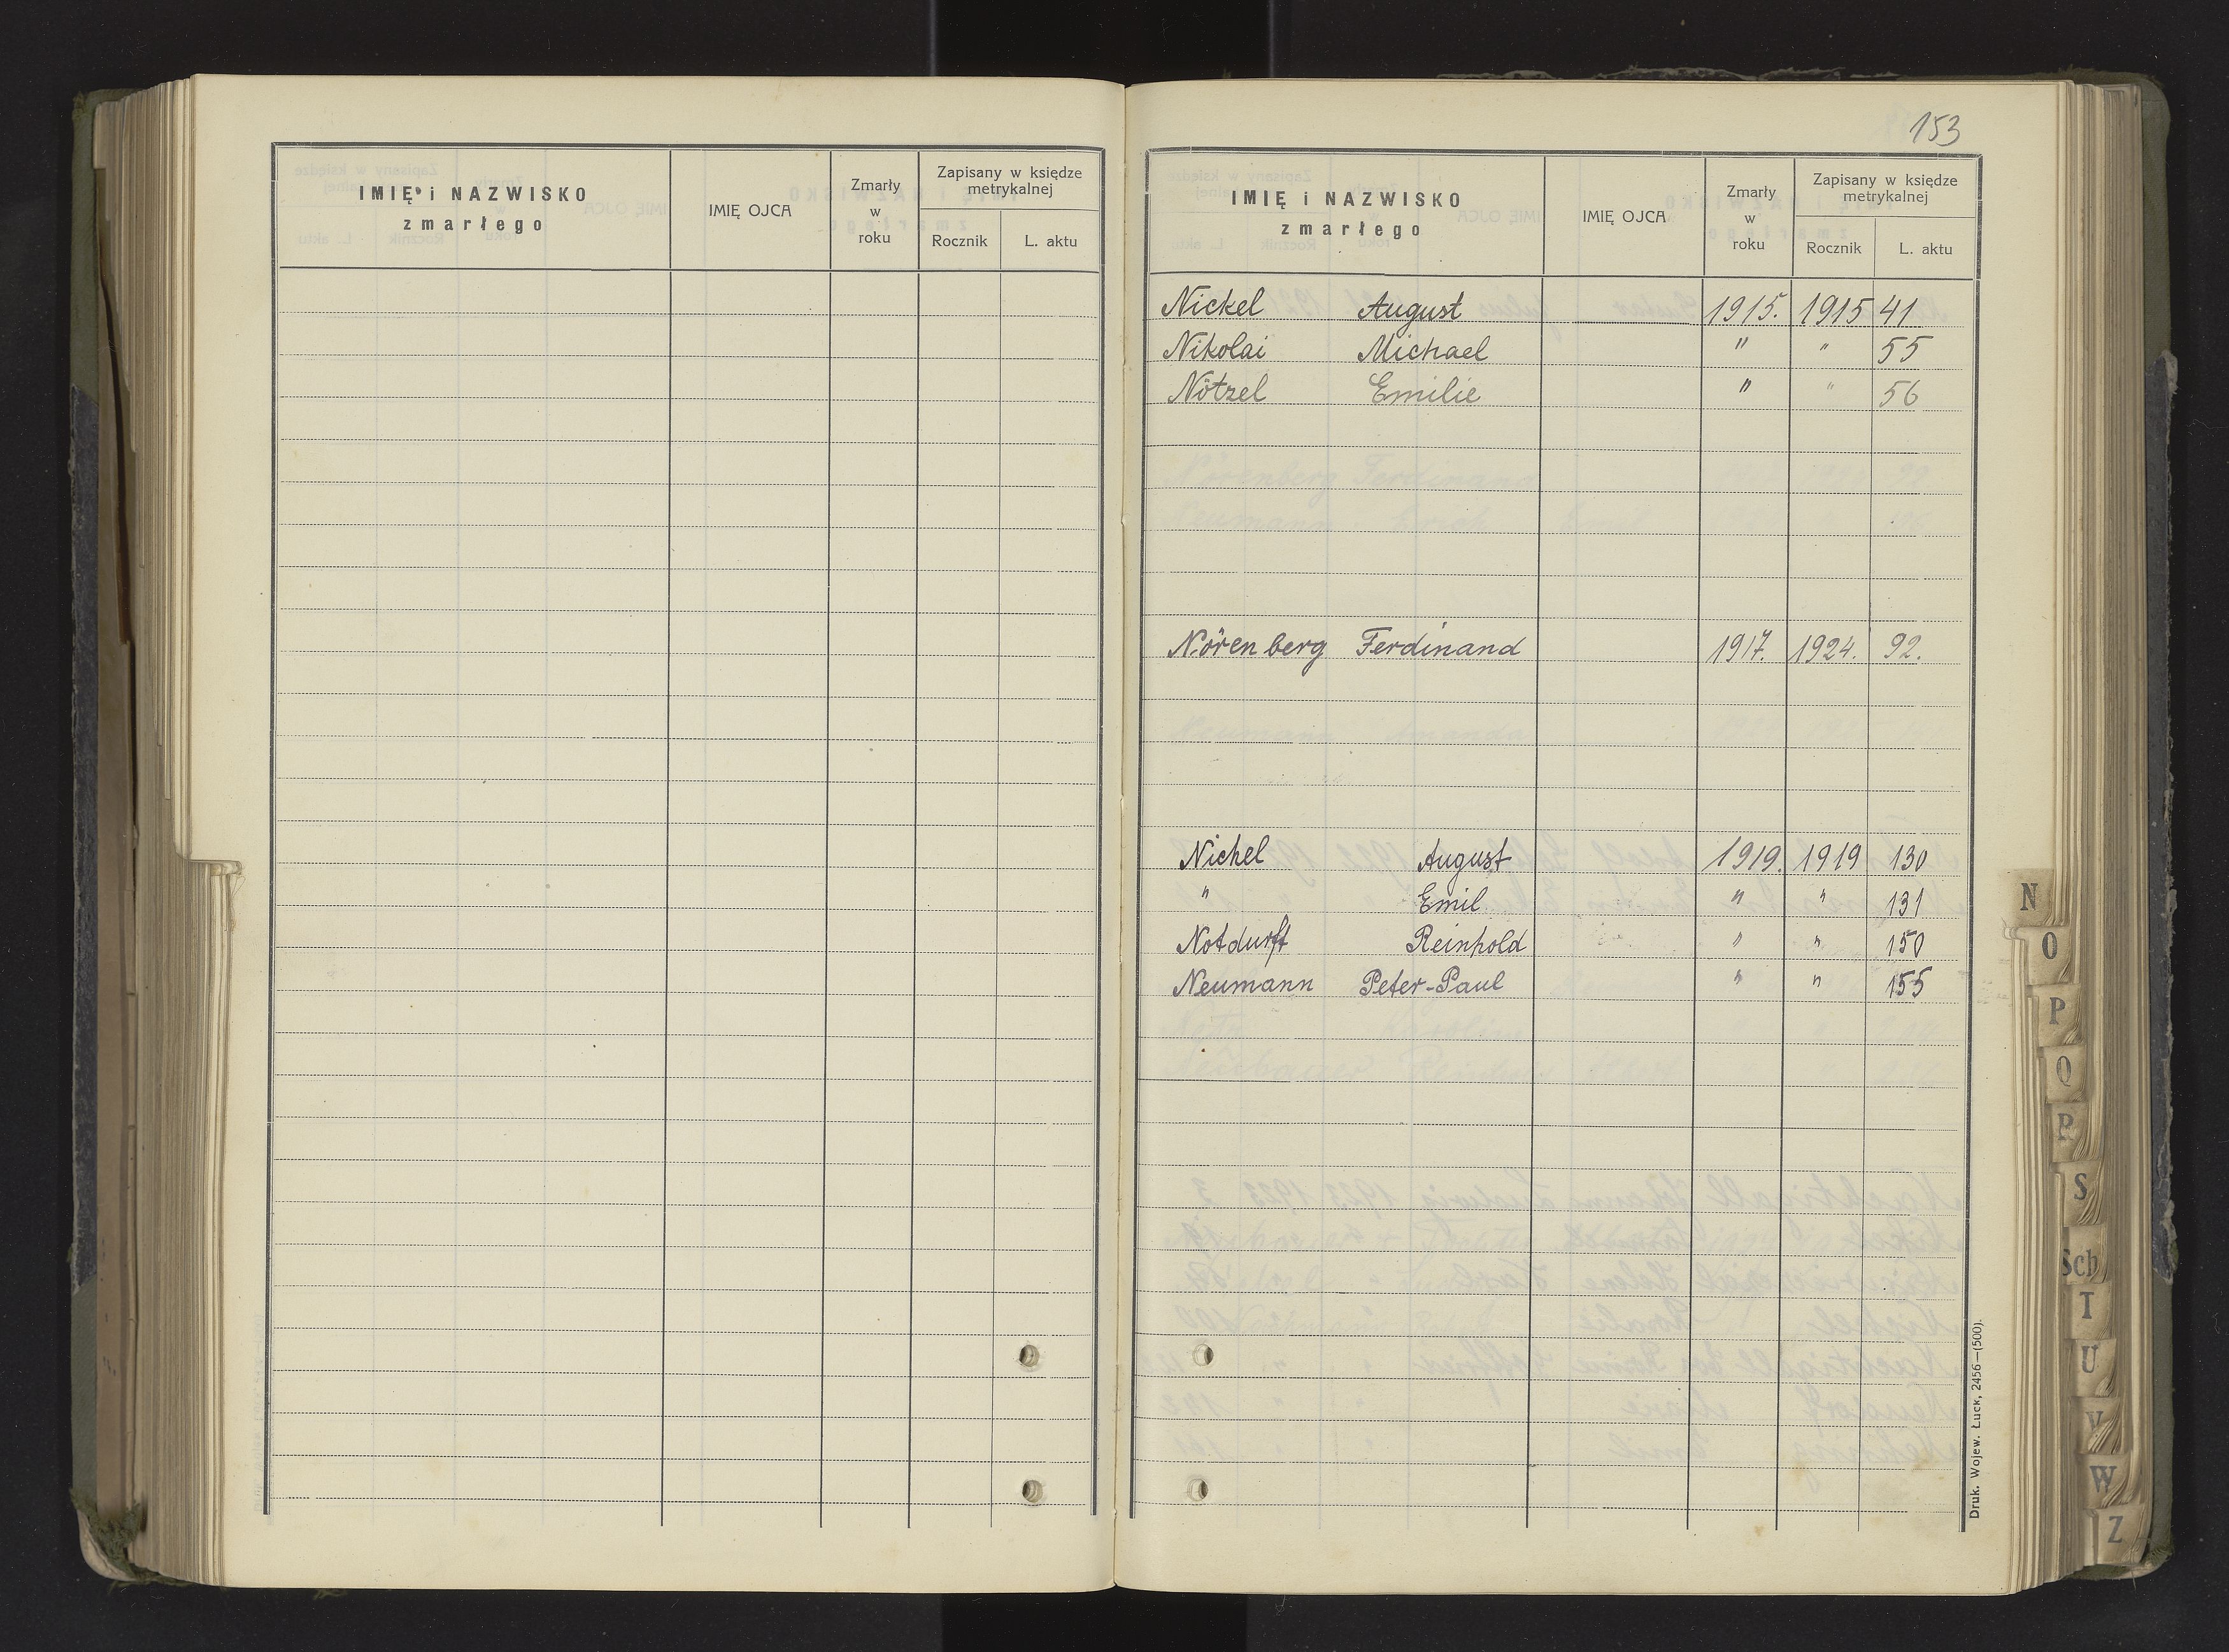 IMIĘ i NAZWISKO
zmarłego
IMIĘ OJCA
Zmarły
w
roku
Zapisany w księdze
metrykalnej
Rocznik
L. aktu
153
IMIĘ i NAZWISKO
zmarłego
IMIĘ OJCA
Zmarły
w
roku
Zapisany w księdze
metrykalnej
Rocznik
L. aktu
Nickel August 1915. 1915 41
Nikolai Michael " " 55
Nötzel Emilie " " 56
Nörenberg Ferdinand 1917. 1924. 92.
Nickel August 1919. 1919 130
" Emil " " 131
Notdurft Reinhold " " 150
Neumann Peter-Paul " " 155
Druk. Wojew. Łuck, 2456—(500).
N
O
P
Q
R
S
Sch
T
U
V
W
Z